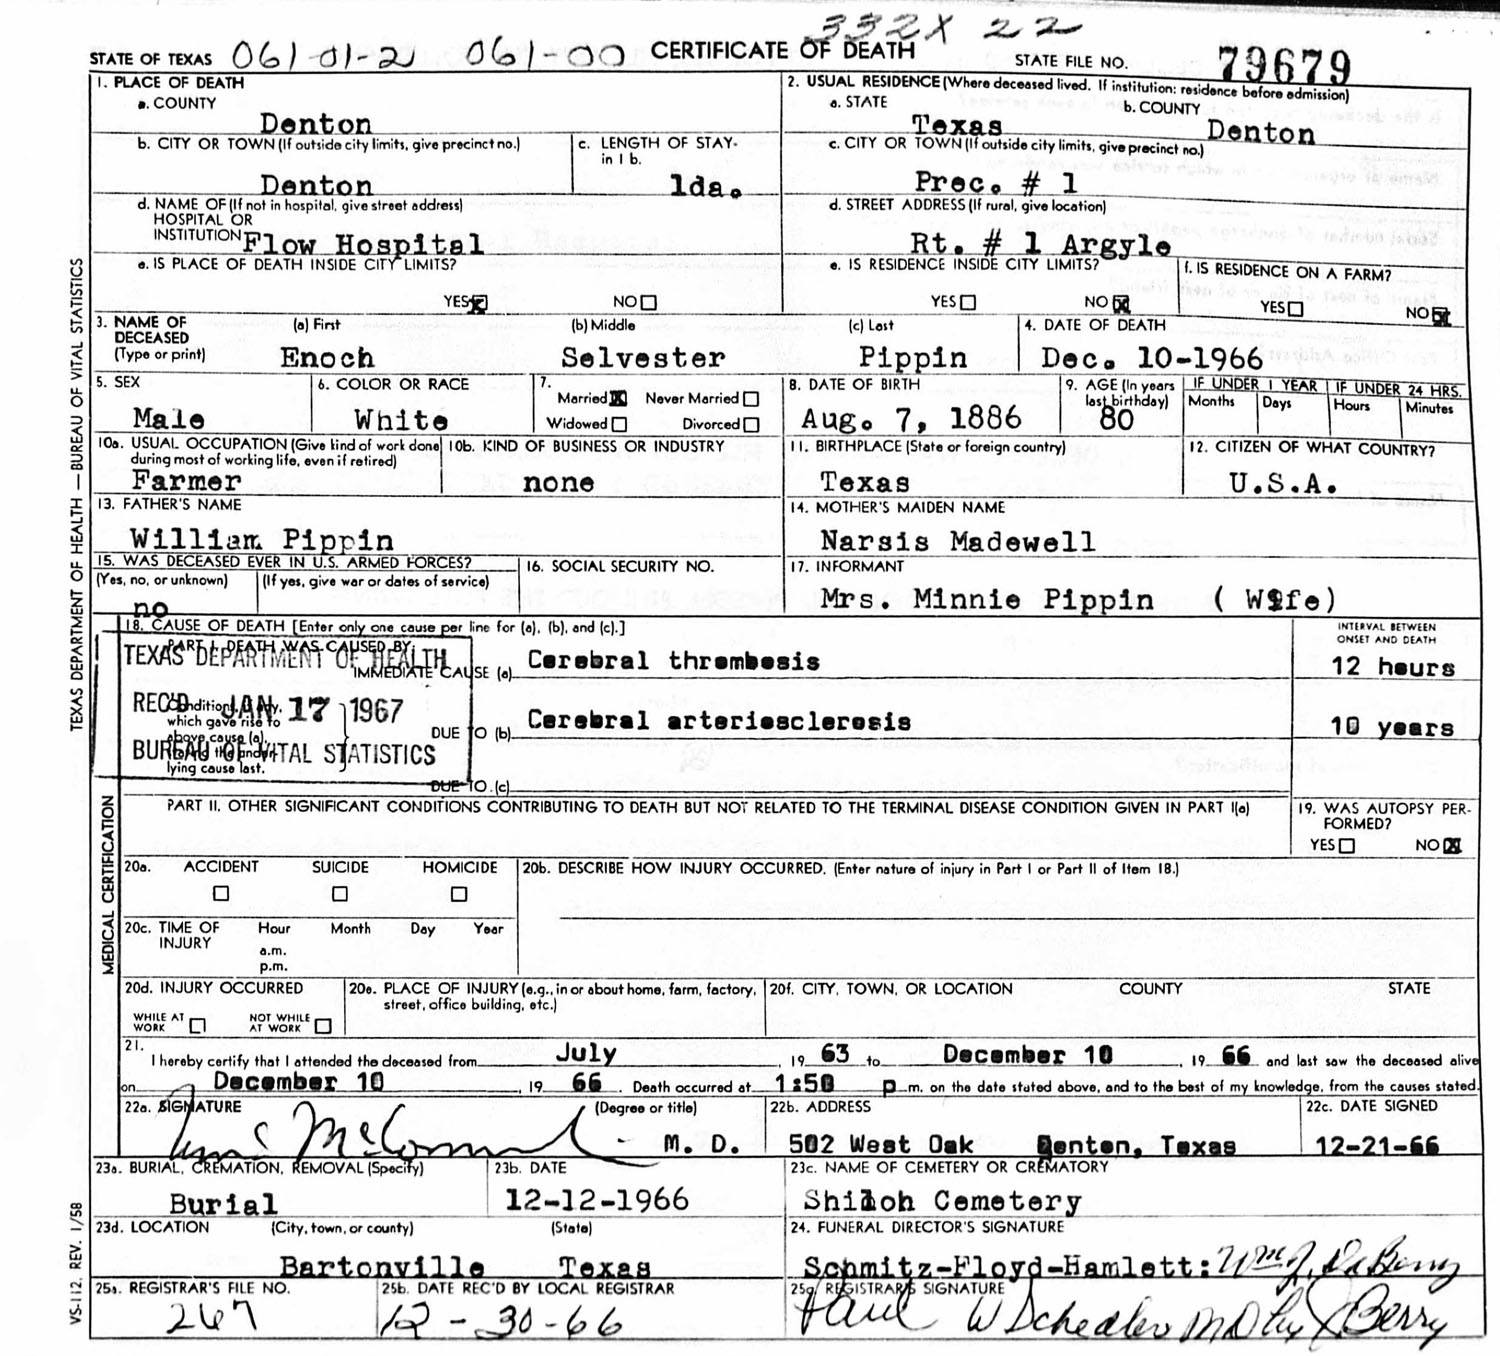 332X 22
STATE OF TEXAS 061-01-2 061-00 CERTIFICATE OF DEATH STATE FILE NO. 79679
1. PLACE OF DEATH
a. COUNTY
Denton
2. USUAL RESIDENCE (Where deceased lived. If institution: residence before admission)
a. STATE
Texas
b. COUNTY
Denton
b. CITY OR TOWN (If outside city limits, give precinct no.)
Denton
c. LENGTH OF STAY-
in 1 b.
1da.
c. CITY OR TOWN (If outside city limits, give precinct no.)
Prec. # 1
d. NAME OF (If not in hospital, give street address)
HOSPITAL OR
INSTITUTION Flow Hospital
d. STREET ADDRESS (If rural, give location)
Rt. # 1 Argyle
e. IS PLACE OF DEATH INSIDE CITY LIMITS?
YES NO
e. IS RESIDENCE INSIDE CITY LIMITS?
YES NO
f. IS RESIDENCE ON A FARM?
YES NO
3. NAME OF
DECEASED
(Type or print)
(a) First
Enoch
(b) Middle
Selvester
(c) Last
Pippin
4. DATE OF DEATH
Dec. 10-1966
5. SEX
Male
6. COLOR OR RACE
White
7.
Married Never Married
Widowed Divorced
8. DATE OF BIRTH
Aug. 7, 1886
9. AGE (In years
last birthday)
80
IF UNDER 1 YEAR
Months Days
IF UNDER 24 HRS.
Hours Minutes
10a. USUAL OCCUPATION (Give kind of work done
during most of working life, even if retired)
Farmer
10b. KIND OF BUSINESS OR INDUSTRY
none
11. BIRTHPLACE (State or foreign country)
Texas
12. CITIZEN OF WHAT COUNTRY?
U.S.A.
13. FATHER'S NAME
William Pippin
14. MOTHER'S MAIDEN NAME
Narsis Madewell
15. WAS DECEASED EVER IN U.S. ARMED FORCES?
(Yes, no, or unknown) (If yes, give war or dates of service)
no
16. SOCIAL SECURITY NO.
17. INFORMANT
Mrs. Minnie Pippin (Wife)
18. CAUSE OF DEATH [Enter only one cause per line for (a), (b), and (c).]
INTERVAL BETWEEN
ONSET AND DEATH
PART I. DEATH WAS CAUSED BY:
IMMEDIATE CAUSE (a) Cerebral thrombosis 12 hours
Conditions, if any,
which gave rise to
above cause (a),
stating the under-
lying cause last.
DUE TO (b) Cerebral arteriosclerosis 10 years
DUE TO (c)
TEXAS DEPARTMENT OF HEALTH
REC'D JAN 17 1967
BUREAU OF VITAL STATISTICS
PART II. OTHER SIGNIFICANT CONDITIONS CONTRIBUTING TO DEATH BUT NOT RELATED TO THE TERMINAL DISEASE CONDITION GIVEN IN PART I(a)
19. WAS AUTOPSY PER-
FORMED?
YES NO
20a. ACCIDENT SUICIDE HOMICIDE
20b. DESCRIBE HOW INJURY OCCURRED. (Enter nature of injury in Part I or Part II of Item 18.)
20c. TIME OF
INJURY
Hour Month Day Year
a.m.
p.m.
20d. INJURY OCCURRED
WHILE AT
WORK
NOT WHILE
AT WORK
20e. PLACE OF INJURY (e.g., in or about home, farm, factory,
street, office building, etc.)
20f. CITY, TOWN, OR LOCATION COUNTY STATE
21.
I hereby certify that I attended the deceased from July, 19 63 to December 10, 19 66 and last saw the deceased alive
on December 10, 19 66. Death occurred at 1:50 p.m. on the date stated above, and to the best of my knowledge, from the causes stated.
22a. SIGNATURE (Degree or title)
M. D.
22b. ADDRESS
502 West Oak Denton, Texas
22c. DATE SIGNED
12-21-66
23a. BURIAL, CREMATION, REMOVAL (Specify)
Burial
23b. DATE
12-12-1966
23c. NAME OF CEMETERY OR CREMATORY
Shiloh Cemetery
23d. LOCATION (City, town, or county) (State)
Bartonville Texas
24. FUNERAL DIRECTOR'S SIGNATURE
Schmitz-Floyd-Hamlett: Wm J. DeBerry
25a. REGISTRAR'S FILE NO.
267
25b. DATE REC'D BY LOCAL REGISTRAR
12-30-66
25c. REGISTRAR'S SIGNATURE
Paul W Schedler MD Berry
TEXAS DEPARTMENT OF HEALTH — BUREAU OF VITAL STATISTICS
MEDICAL CERTIFICATION
VS-112. REV. 1/58